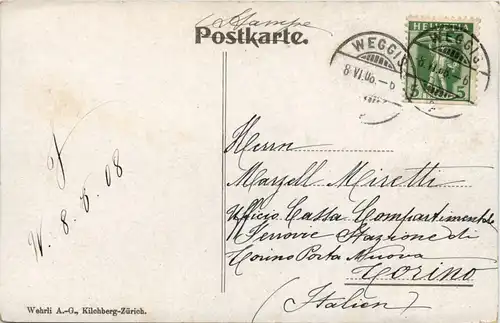 (Stampe)
Postkarte.
HELVETIA
5 5
WEGGIS
8 VI. 08. – 6
WEGGIS
8 VI. 08. – 6
W. 8. 6. 08
Herrn
Marzell Miretti
Ufficio Cassa Compartimentale
Ferrovie Stazione di
Torino Porta Nuova
Torino
(Italien)
Wehrli A.-G., Kilchberg-Zürich.